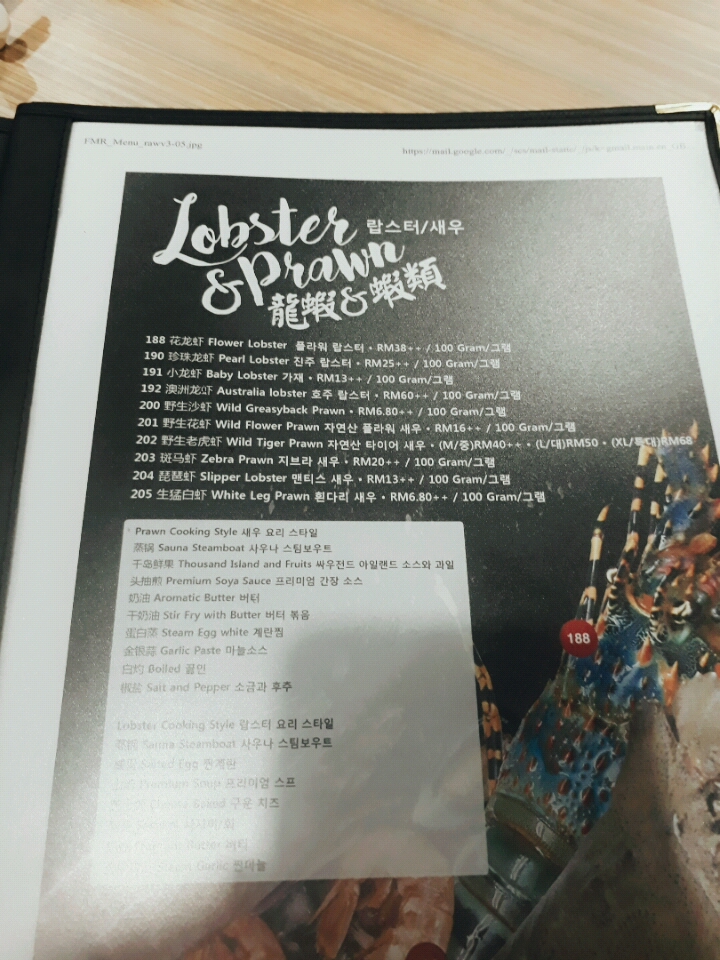 FMR_Menu_rawv3-05.jpg
Lobster 랍스터/새우
&Prawn
龍蝦&蝦類
188 花龙虾 Flower Lobster 플라워 랍스터 • RM38++ / 100 Gram/그램
190 珍珠龙虾 Pearl Lobster 진주 랍스터 • RM25++ / 100 Gram/그램
191 小龙虾 Baby Lobster 가재 • RM13++ / 100 Gram/그램
192 澳洲龙虾 Australia lobster 호주 랍스터 • RM60++ / 100 Gram/그램
200 野生沙虾 Wild Greasyback Prawn • RM6.80++ / 100 Gram/그램
201 野生花虾 Wild Flower Prawn 자연산 플라워 새우 • RM16++ / 100 Gram/그램
202 野生老虎虾 Wild Tiger Prawn 자연산 타이어 새우 • (M/중)RM40++ • (L/대)RM50 • (XL/특대)RM68
203 斑马虾 Zebra Prawn 지브라 새우 • RM20++ / 100 Gram/그램
204 琵琶虾 Slipper Lobster 맨티스 새우 • RM13++ / 100 Gram/그램
205 生猛白虾 White Leg Prawn 흰다리 새우 • RM6.80++ / 100 Gram/그램
Prawn Cooking Style 새우 요리 스타일
蒸锅 Sauna Steamboat 사우나 스팀보우트
千岛鲜果 Thousand Island and Fruits 싸우전드 아일랜드 소스와 과일
头抽煎 Premium Soya Sauce 프리미엄 간장 소스
奶油 Aromatic Butter 버터
干奶油 Stir Fry with Butter 버터 볶음
蛋白蒸 Steam Egg white 계란찜
金银蒜 Garlic Paste 마늘소스
白灼 Boiled 끓인
椒盐 Salt and Pepper 소금과 후추
Lobster Cooking Style 랍스터 요리 스타일
蒸锅 Sauna Steamboat 사우나 스팀보우트
Salted Egg 찐계란
Premium Soup 프리미엄 스프
구운 치즈
버터
Steam Garlic 찐마늘
188